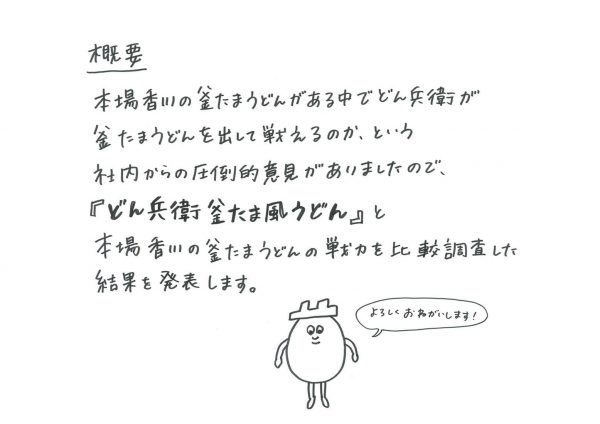 概要
本場香川の釜たまうどんがある中でどん兵衛が
釜たまうどんを出して戦えるのか、という
社内からの圧倒的意見がありましたので、
『どん兵衛 釜たま風うどん』と
本場香川の釜たまうどんの戦力を比較調査した
結果を発表します。
よろしくおねがいします!